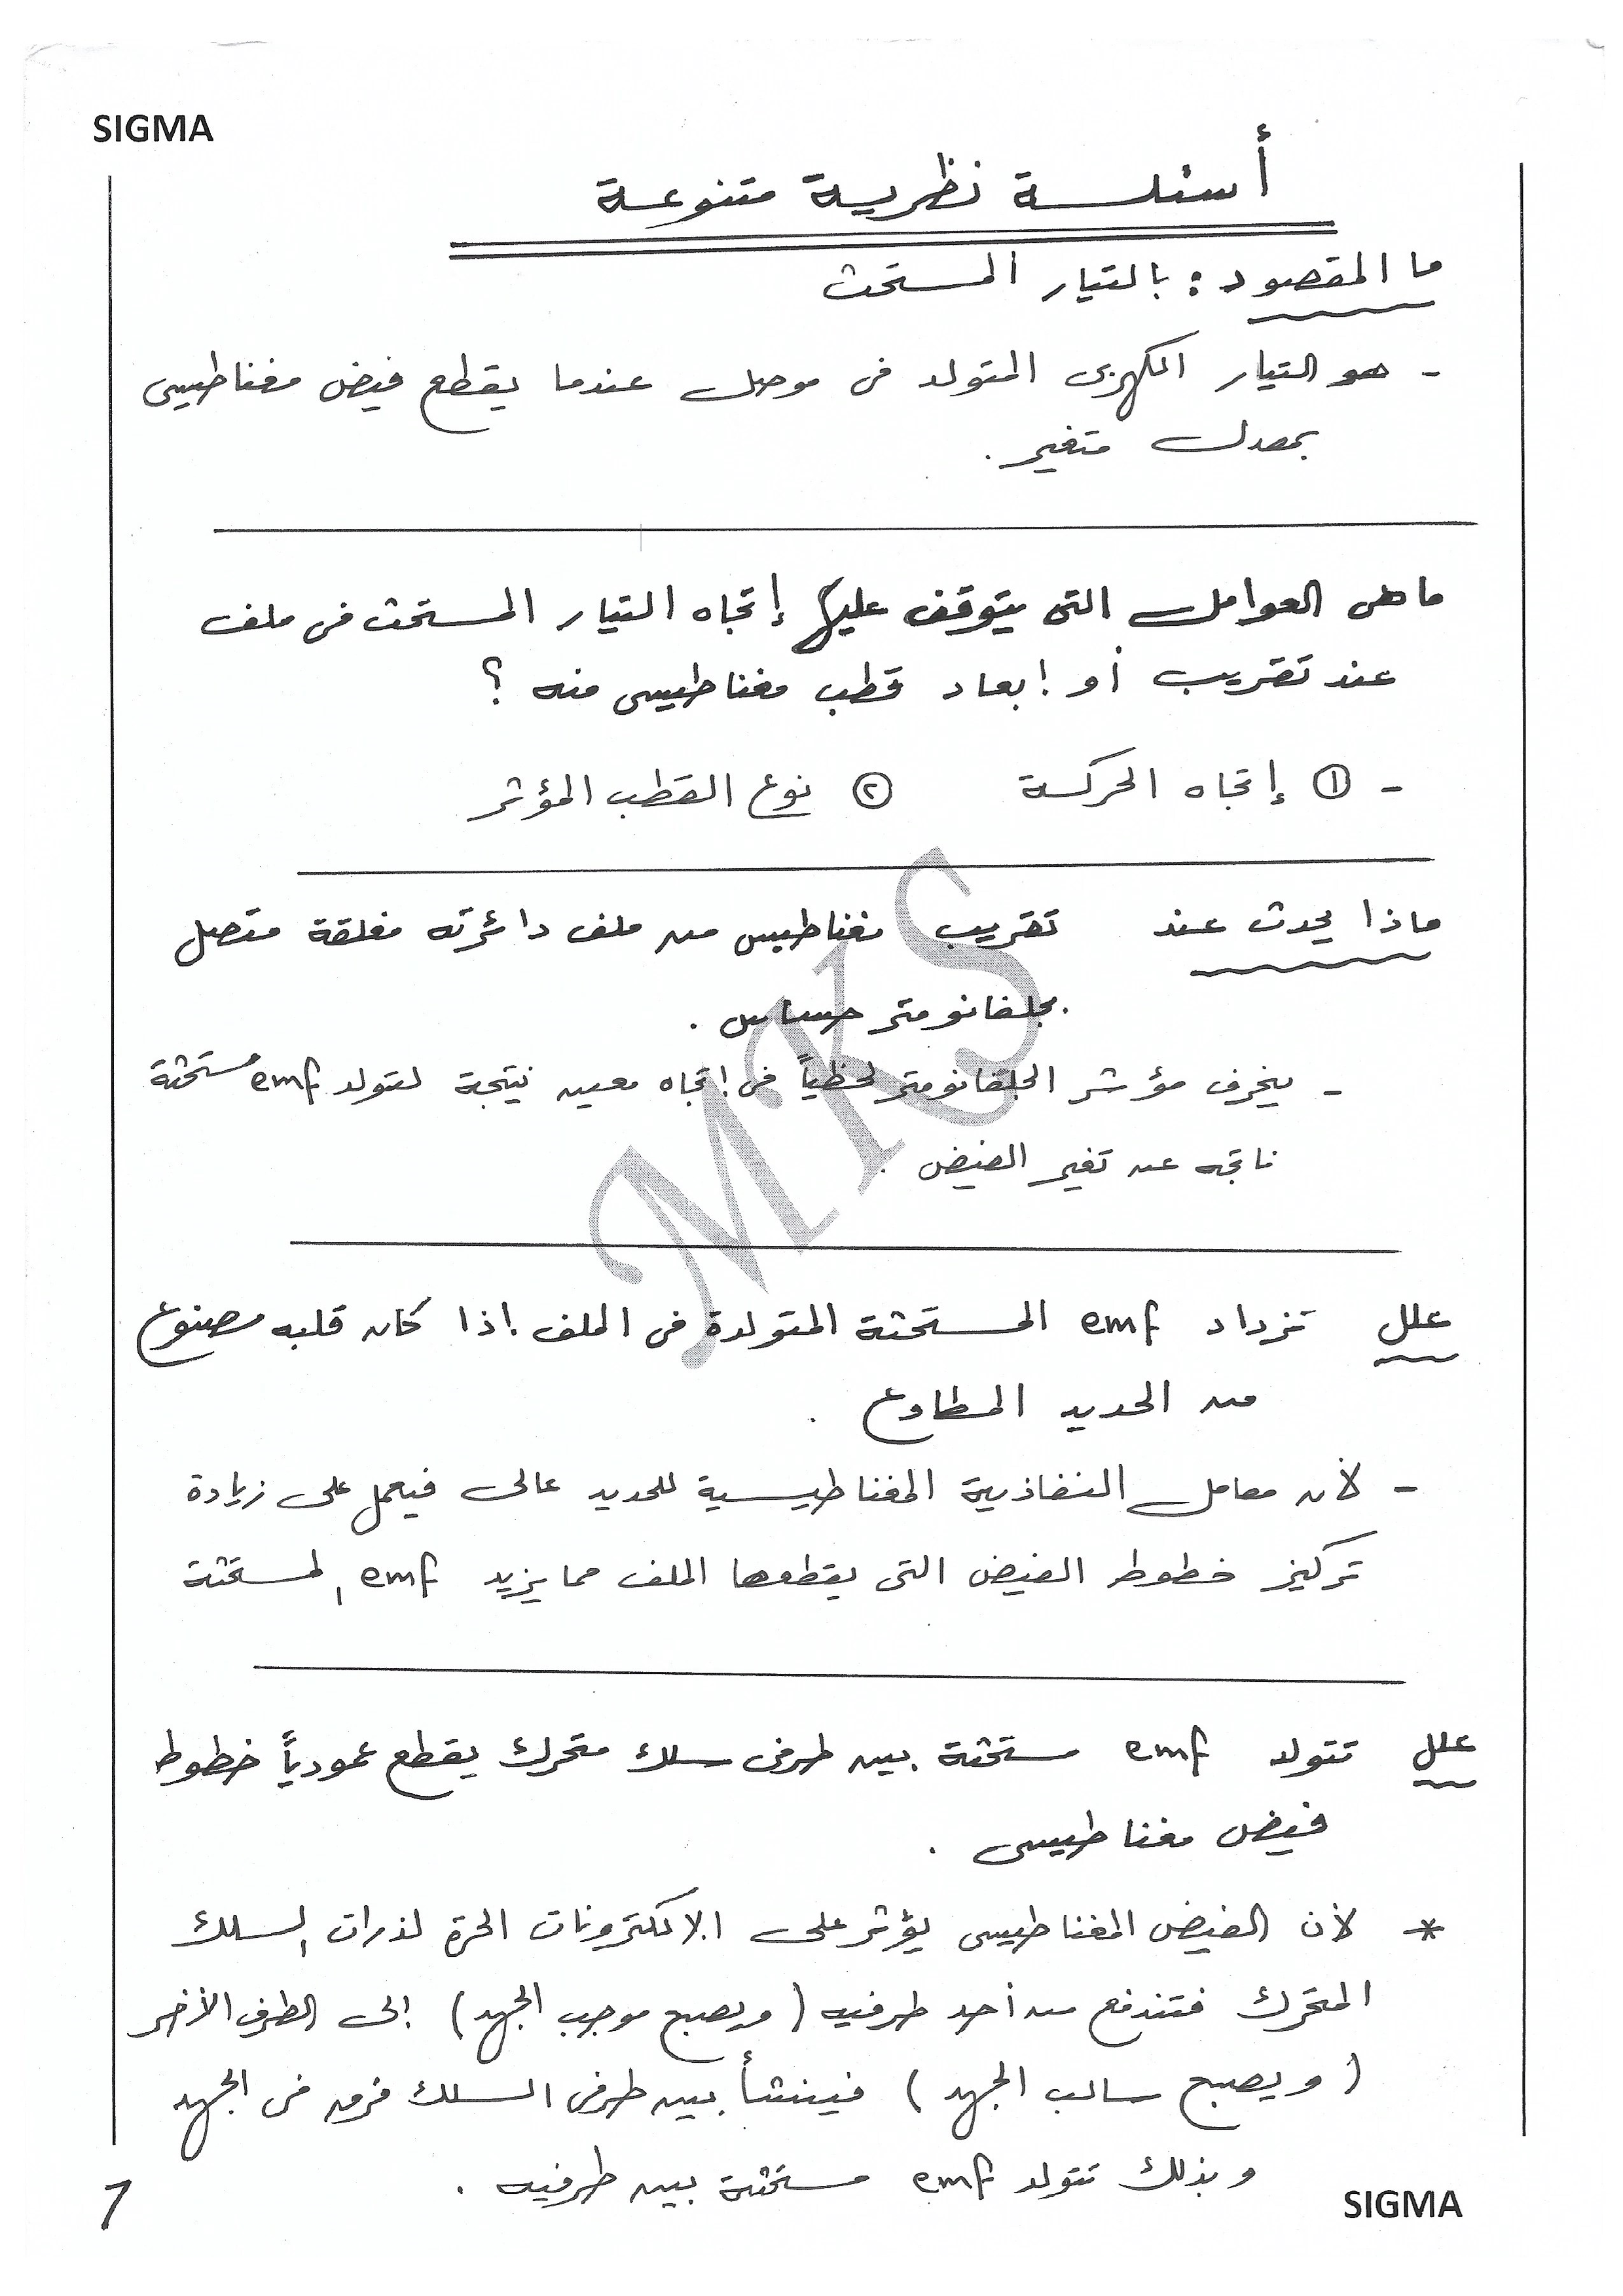 SIGMA
أسئلة نظرية متنوعة
ما المقصود : بالتيار المستحث
- هو التيار الكهربى المتولد فى موصل عندما يقطع فيض مغناطيسى
بمعدل متغير .
ما هى العوامل التى يتوقف عليها إتجاه التيار المستحث فى ملف
عند تقريب أو إبعاد قطب مغناطيسى منه ؟
- ① إتجاه الحركة ② نوع القطب المؤثر
ماذا يحدث عند تقريب مغناطيس من ملف دائرته مغلقة متصل
بجلفانومتر حساس .
- ينحرف مؤشر الجلفانومتر لحظياً فى إتجاه معين نتيجة لتولد emf مستحثة
ناتجه عن تغير الفيض .
علل تزداد emf المستحثة المتولدة فى الملف إذا كان قلبه مصنوع
من الحديد المطاوع .
- لأن معامل النفاذية المغناطيسية للحديد عالى فيعمل على زيادة
تركيز خطوط الفيض التى يقطعها الملف مما يزيد emf المستحثة
علل تتولد emf مستحثة بين طرفى سلك متحرك يقطع عمودياً خطوط
فيض مغناطيسى .
* لأن الفيض المغناطيسى يؤثر على الإلكترونات الحرة لذرات السلك
المتحرك فتندفع من أحد طرفيه ( ويصبح موجب الجهد ) إلى الطرف الأخر
( ويصبح سالب الجهد ) فينشأ بين طرفى السلك فرق فى الجهد
وبذلك تتولد emf مستحثة بين طرفيه .
SIGMA
1
MKS